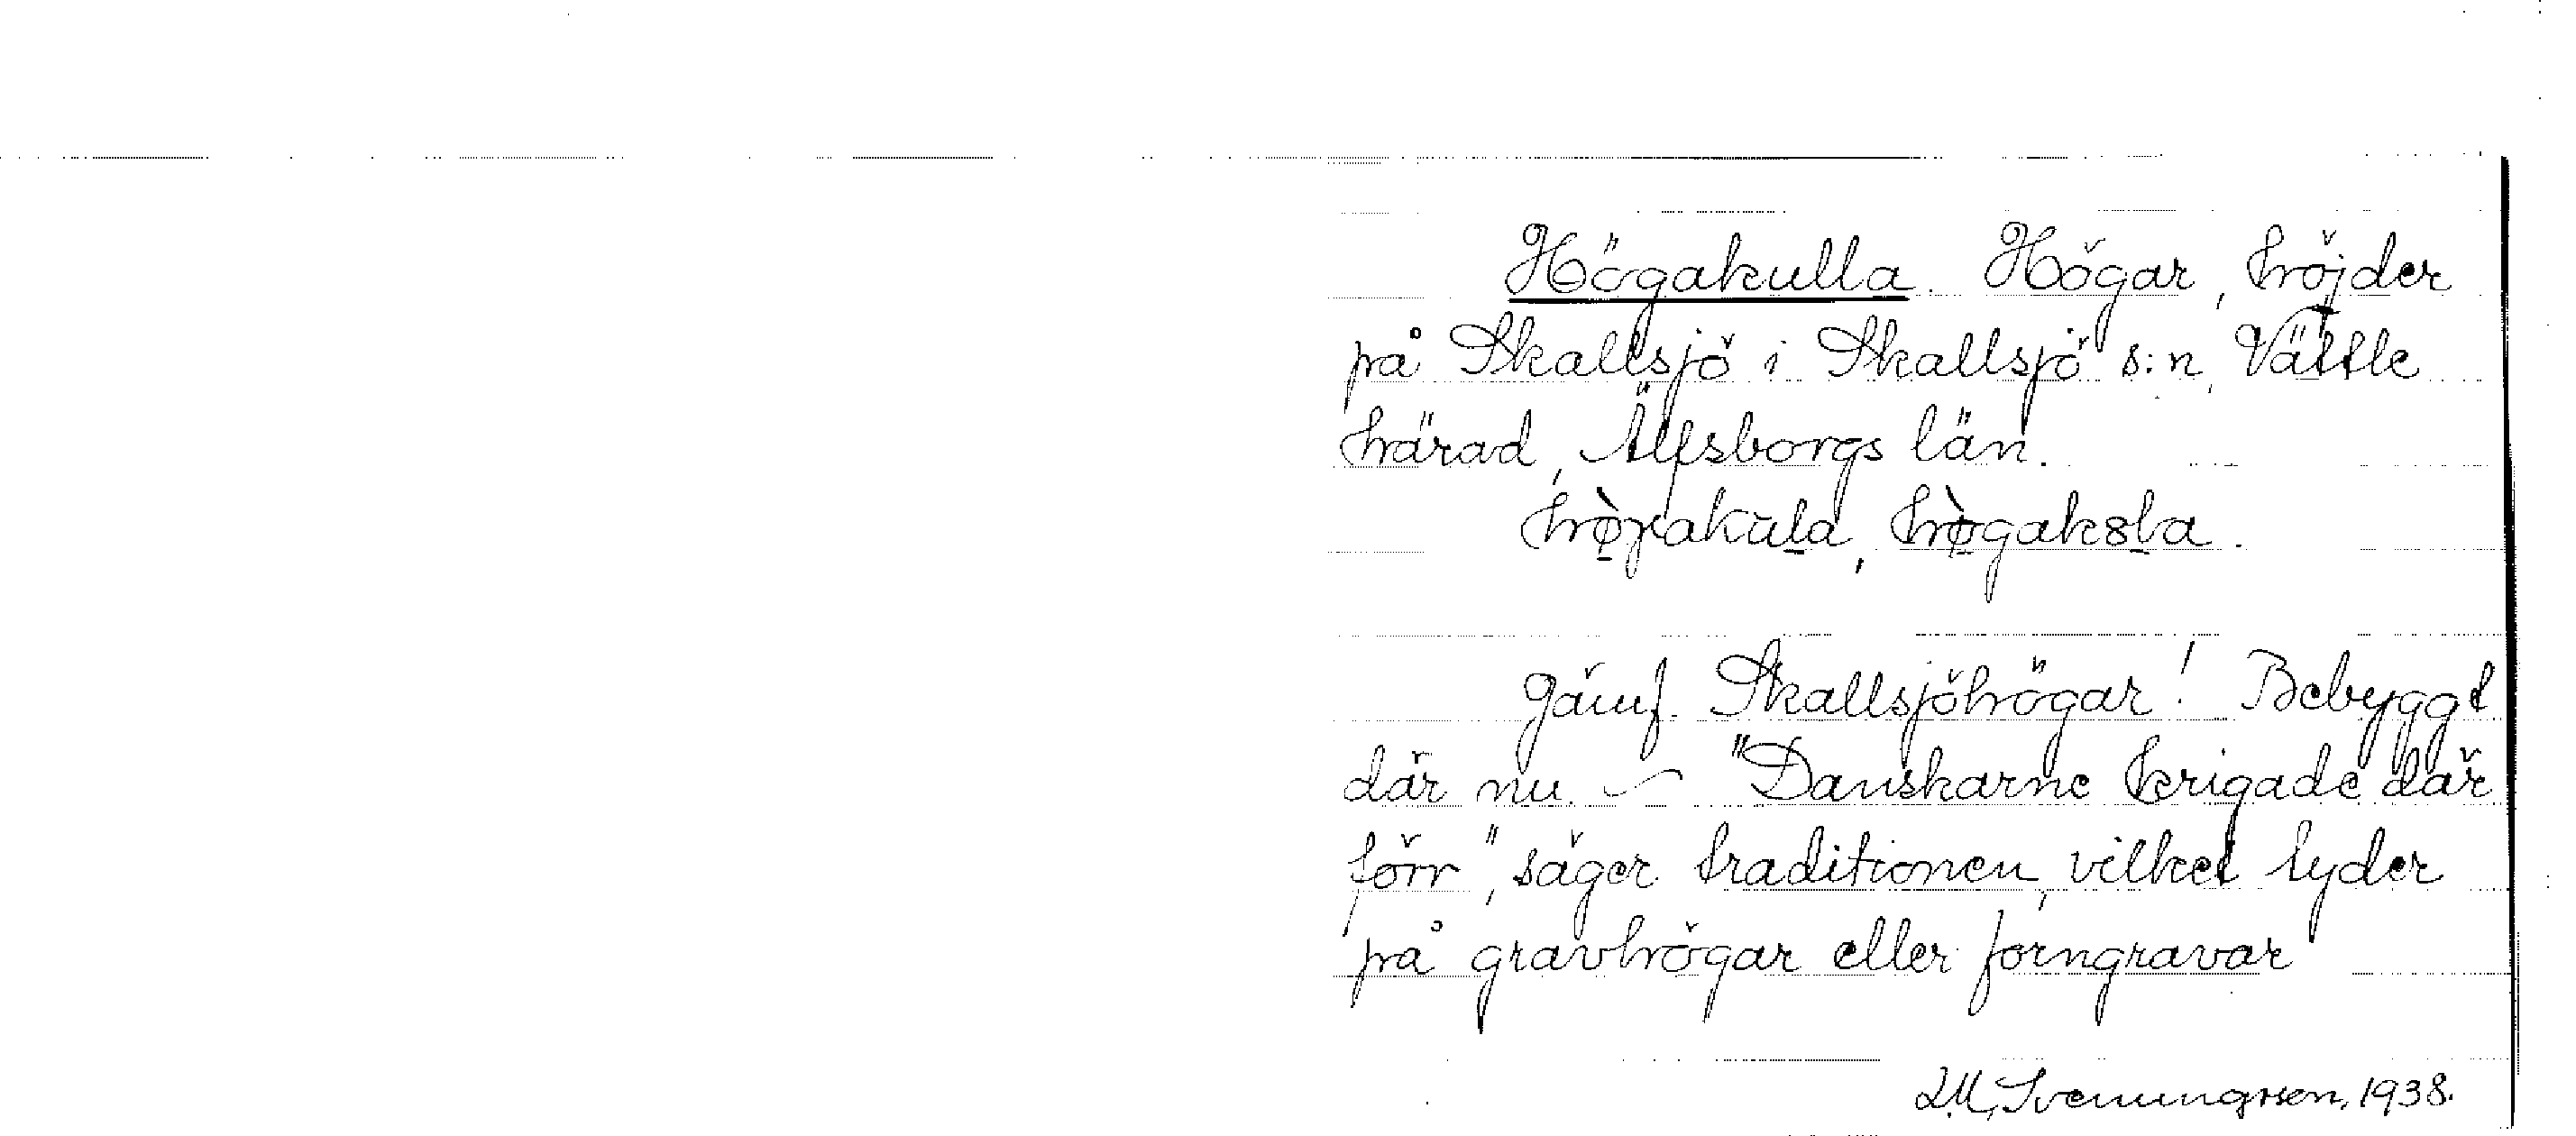 Högakulla. Högar, höjder
på Skallsjö i Skallsjö s:n, Vättle
härad, Älfsborgs län.
hø̀gakula, hø̀gak8la.
Jämf. Skallsjöhögar! Bebyggt
där nu. – "Danskarne krigade där
förr", säger traditionen, vilket tyder
på gravhögar eller forngravar
Svenungsson, 1938.